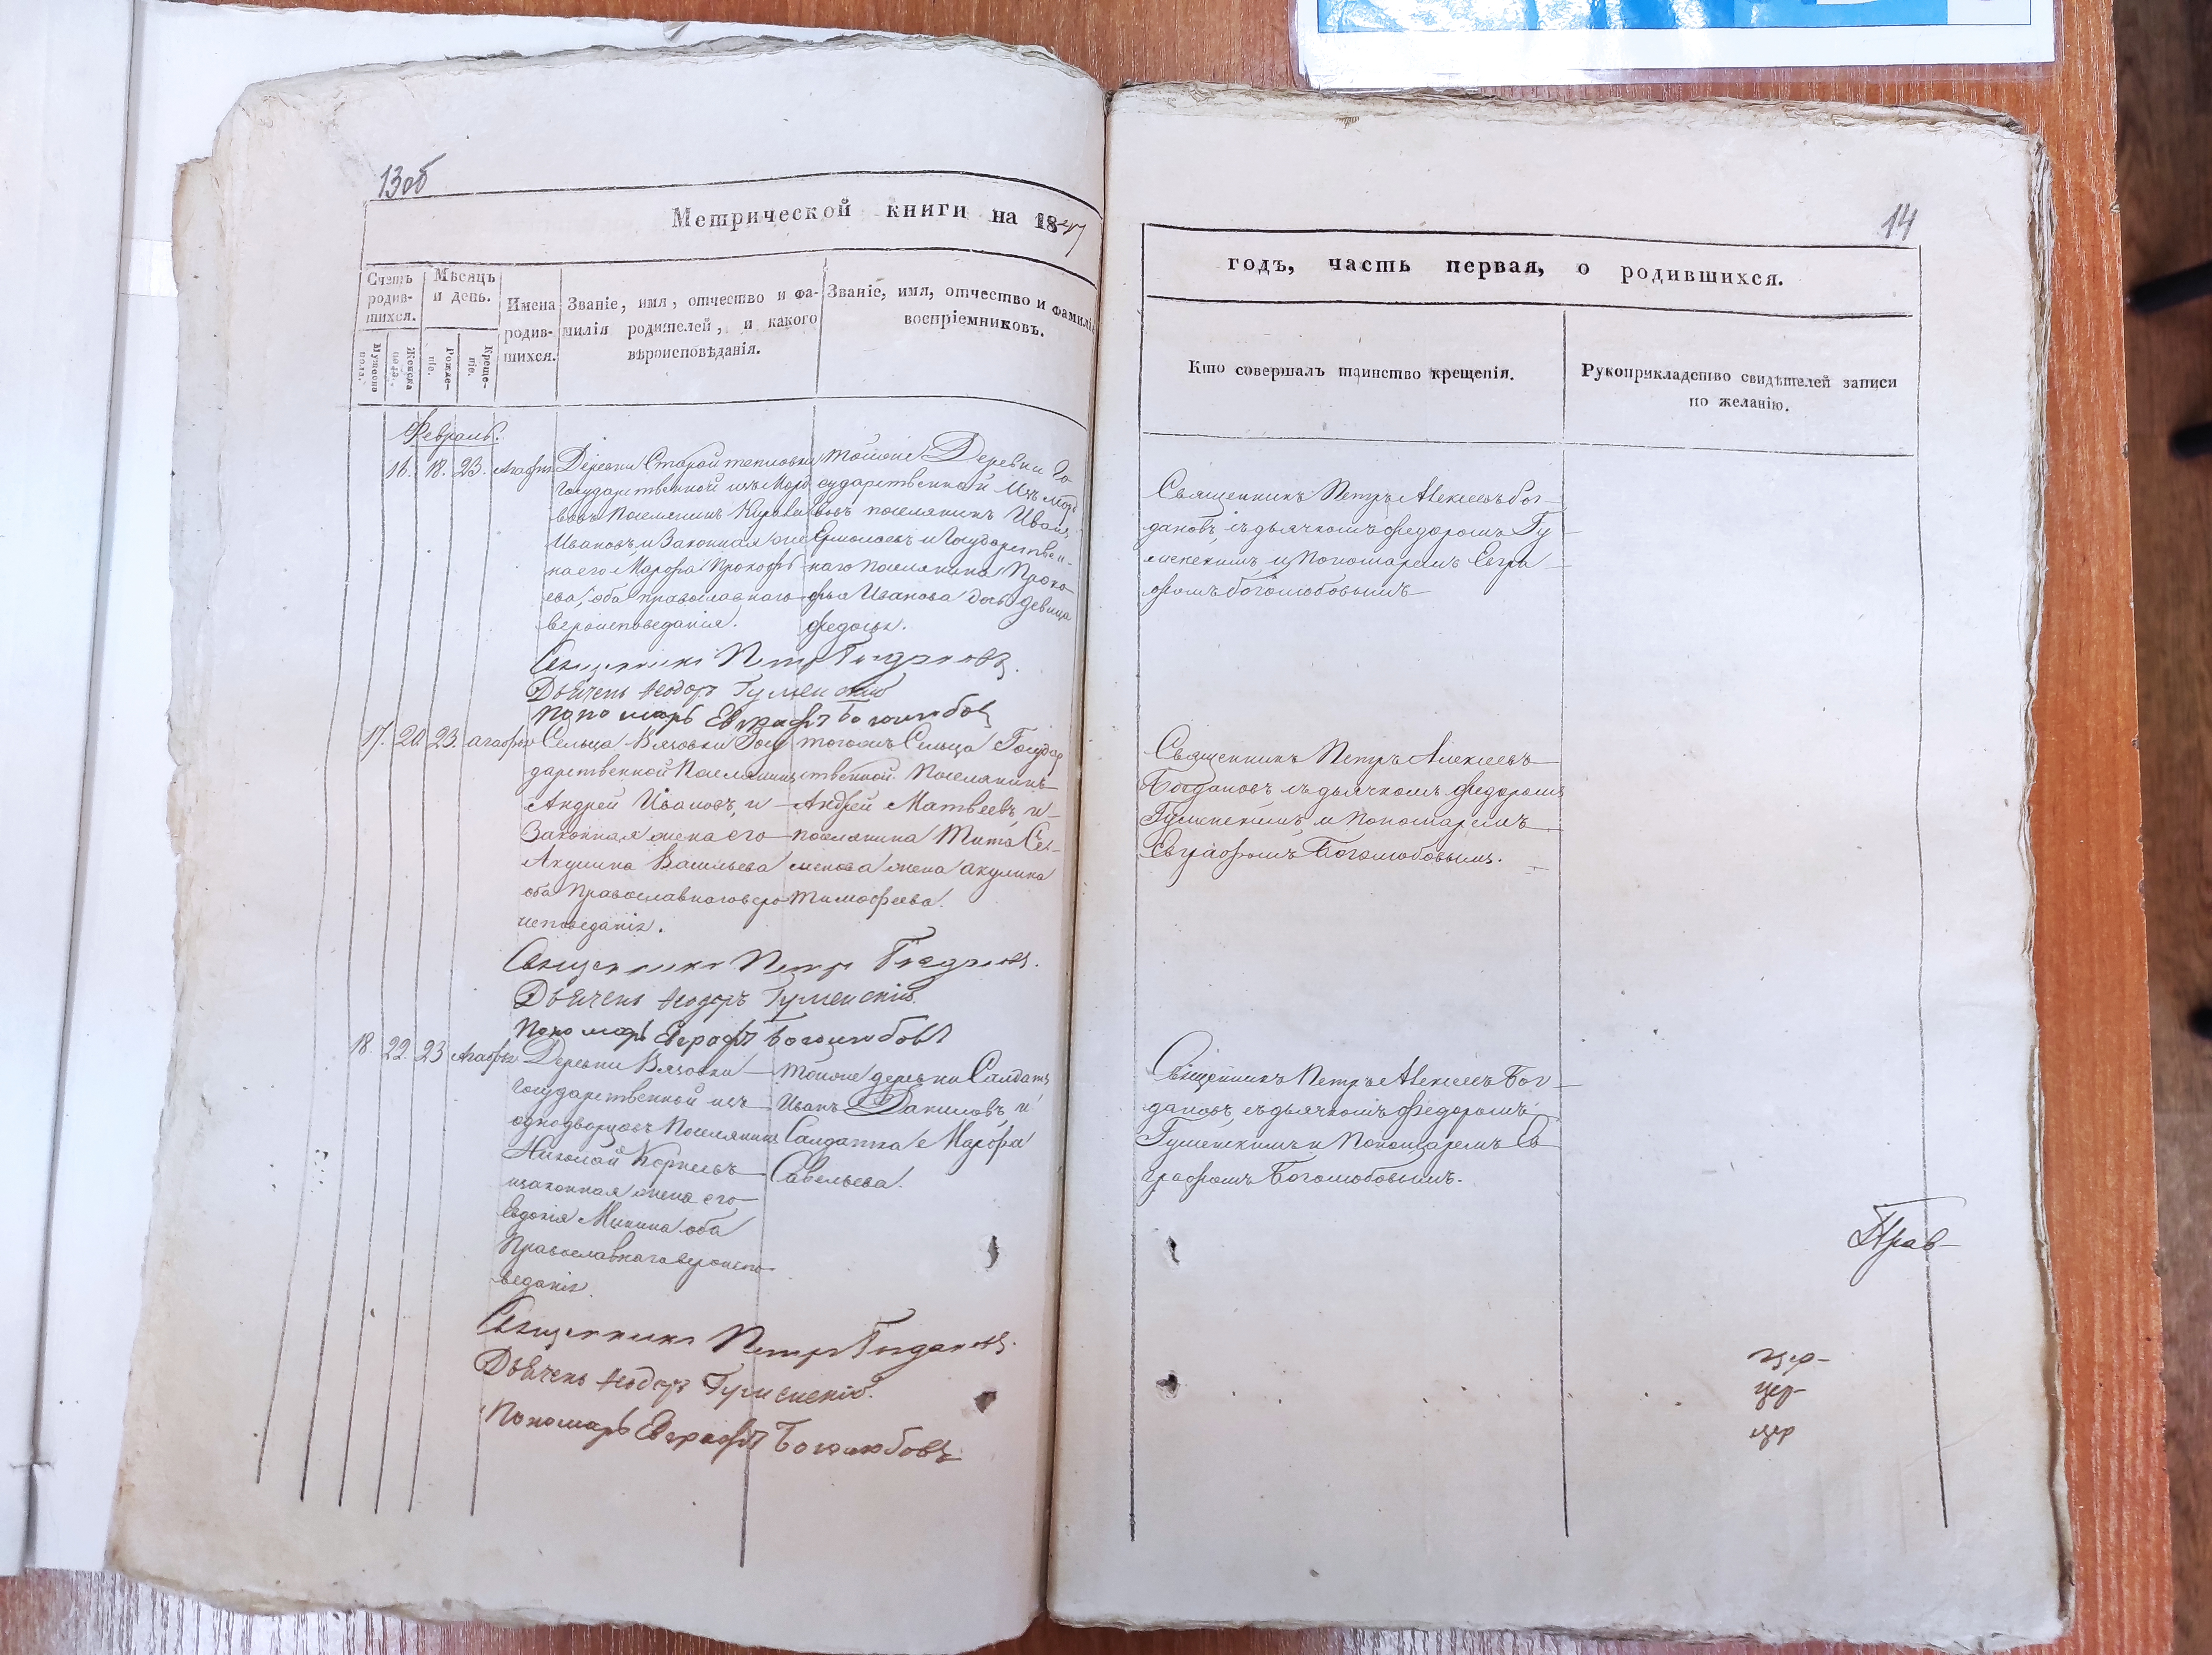 13об
Метрической книги на 1847
Счетъ родившихся.
Мужеска пола.
Женска пола.
Мѣсяцъ и день.
Рожденіе.
Крещеніе.
Имена родившихся.
Званіе, имя, отчество и фамилія родителей, и какого вѣроисповѣданія.
Званіе, имя, отчество и фамилія воспріемниковъ.
Февраль.
16. 18. 23. Агафья
Деревни Старой тепловки
Государственной изъ Морд
вовъ Поселянинъ
Ивановъ, и Законная же
на его Марфа Прокофь
ева, оба православнаго
вероисповедания.
тойже Деревни Го
сударственной Изъ Морд
вовъ поселянинъ Иванъ
Ермолаевъ и Государствен-
наго поселянина Проко-
фья Иванова дочь девица
Федосья.
Священникъ Петръ Богдановъ.
Дьячекъ Ѳеодоръ Гуменскій
Пономарь Евграфъ Боголюбовъ
17. 20 23. Агафья
Сельца Вязовки Госу
дарственной Поселянинъ
Андрей Ивановъ, и
Законная жена его
Акулина Васильева
оба Православнаго веро
исповеданія.
тогожъ Сельца Государ
ственной Поселянинъ
Андрей Матвеевъ, и
поселянина Тита Се-
менова жена Акулина
Тимофеева.
Священникъ Петръ Богдановъ.
Дьячекъ Ѳеодоръ Гуменскій.
Пономарь Евграфъ Боголюбовъ
18. 22. 23 Агафья
Деревни Вязовки
Государственной изъ
однодворцовъ Поселянинъ
Николай Корнеевъ
и законная жена его
Евдокія Минина оба
Православнаго вероиспо
веданія.
тойже деревни Салдатъ
Иванъ Даниловъ, и
Салдатка Марфа
Савельева.
Священникъ Петръ Богдановъ.
Дьячекъ Ѳеодоръ Гуменскій.
Пономарь Евграфъ Боголюбовъ
14
годъ, часть первая, о родившихся.
Кто совершалъ таинство крещенія.
Рукоприкладство свидѣтелей записи по желанію.
Священникъ Петръ Алексеевъ Бог-
дановъ, съ дьячкомъ Федоромъ Гу
менскимъ, и Пономаремъ Евгра
фомъ Боголюбовымъ
Священникъ Петръ Алексеевъ
Богдановъ съ дьячкомъ Федоромъ
Гуменскимъ, и Пономаремъ
Евграфомъ Боголюбовымъ.
Священникъ Петръ Алексеевъ Бог-
дановъ, съ дьячкомъ Федоромъ
Гуменскимъ и Пономаремъ Ев
графомъ Боголюбовымъ.
Прав-
цер-
цер-
цер